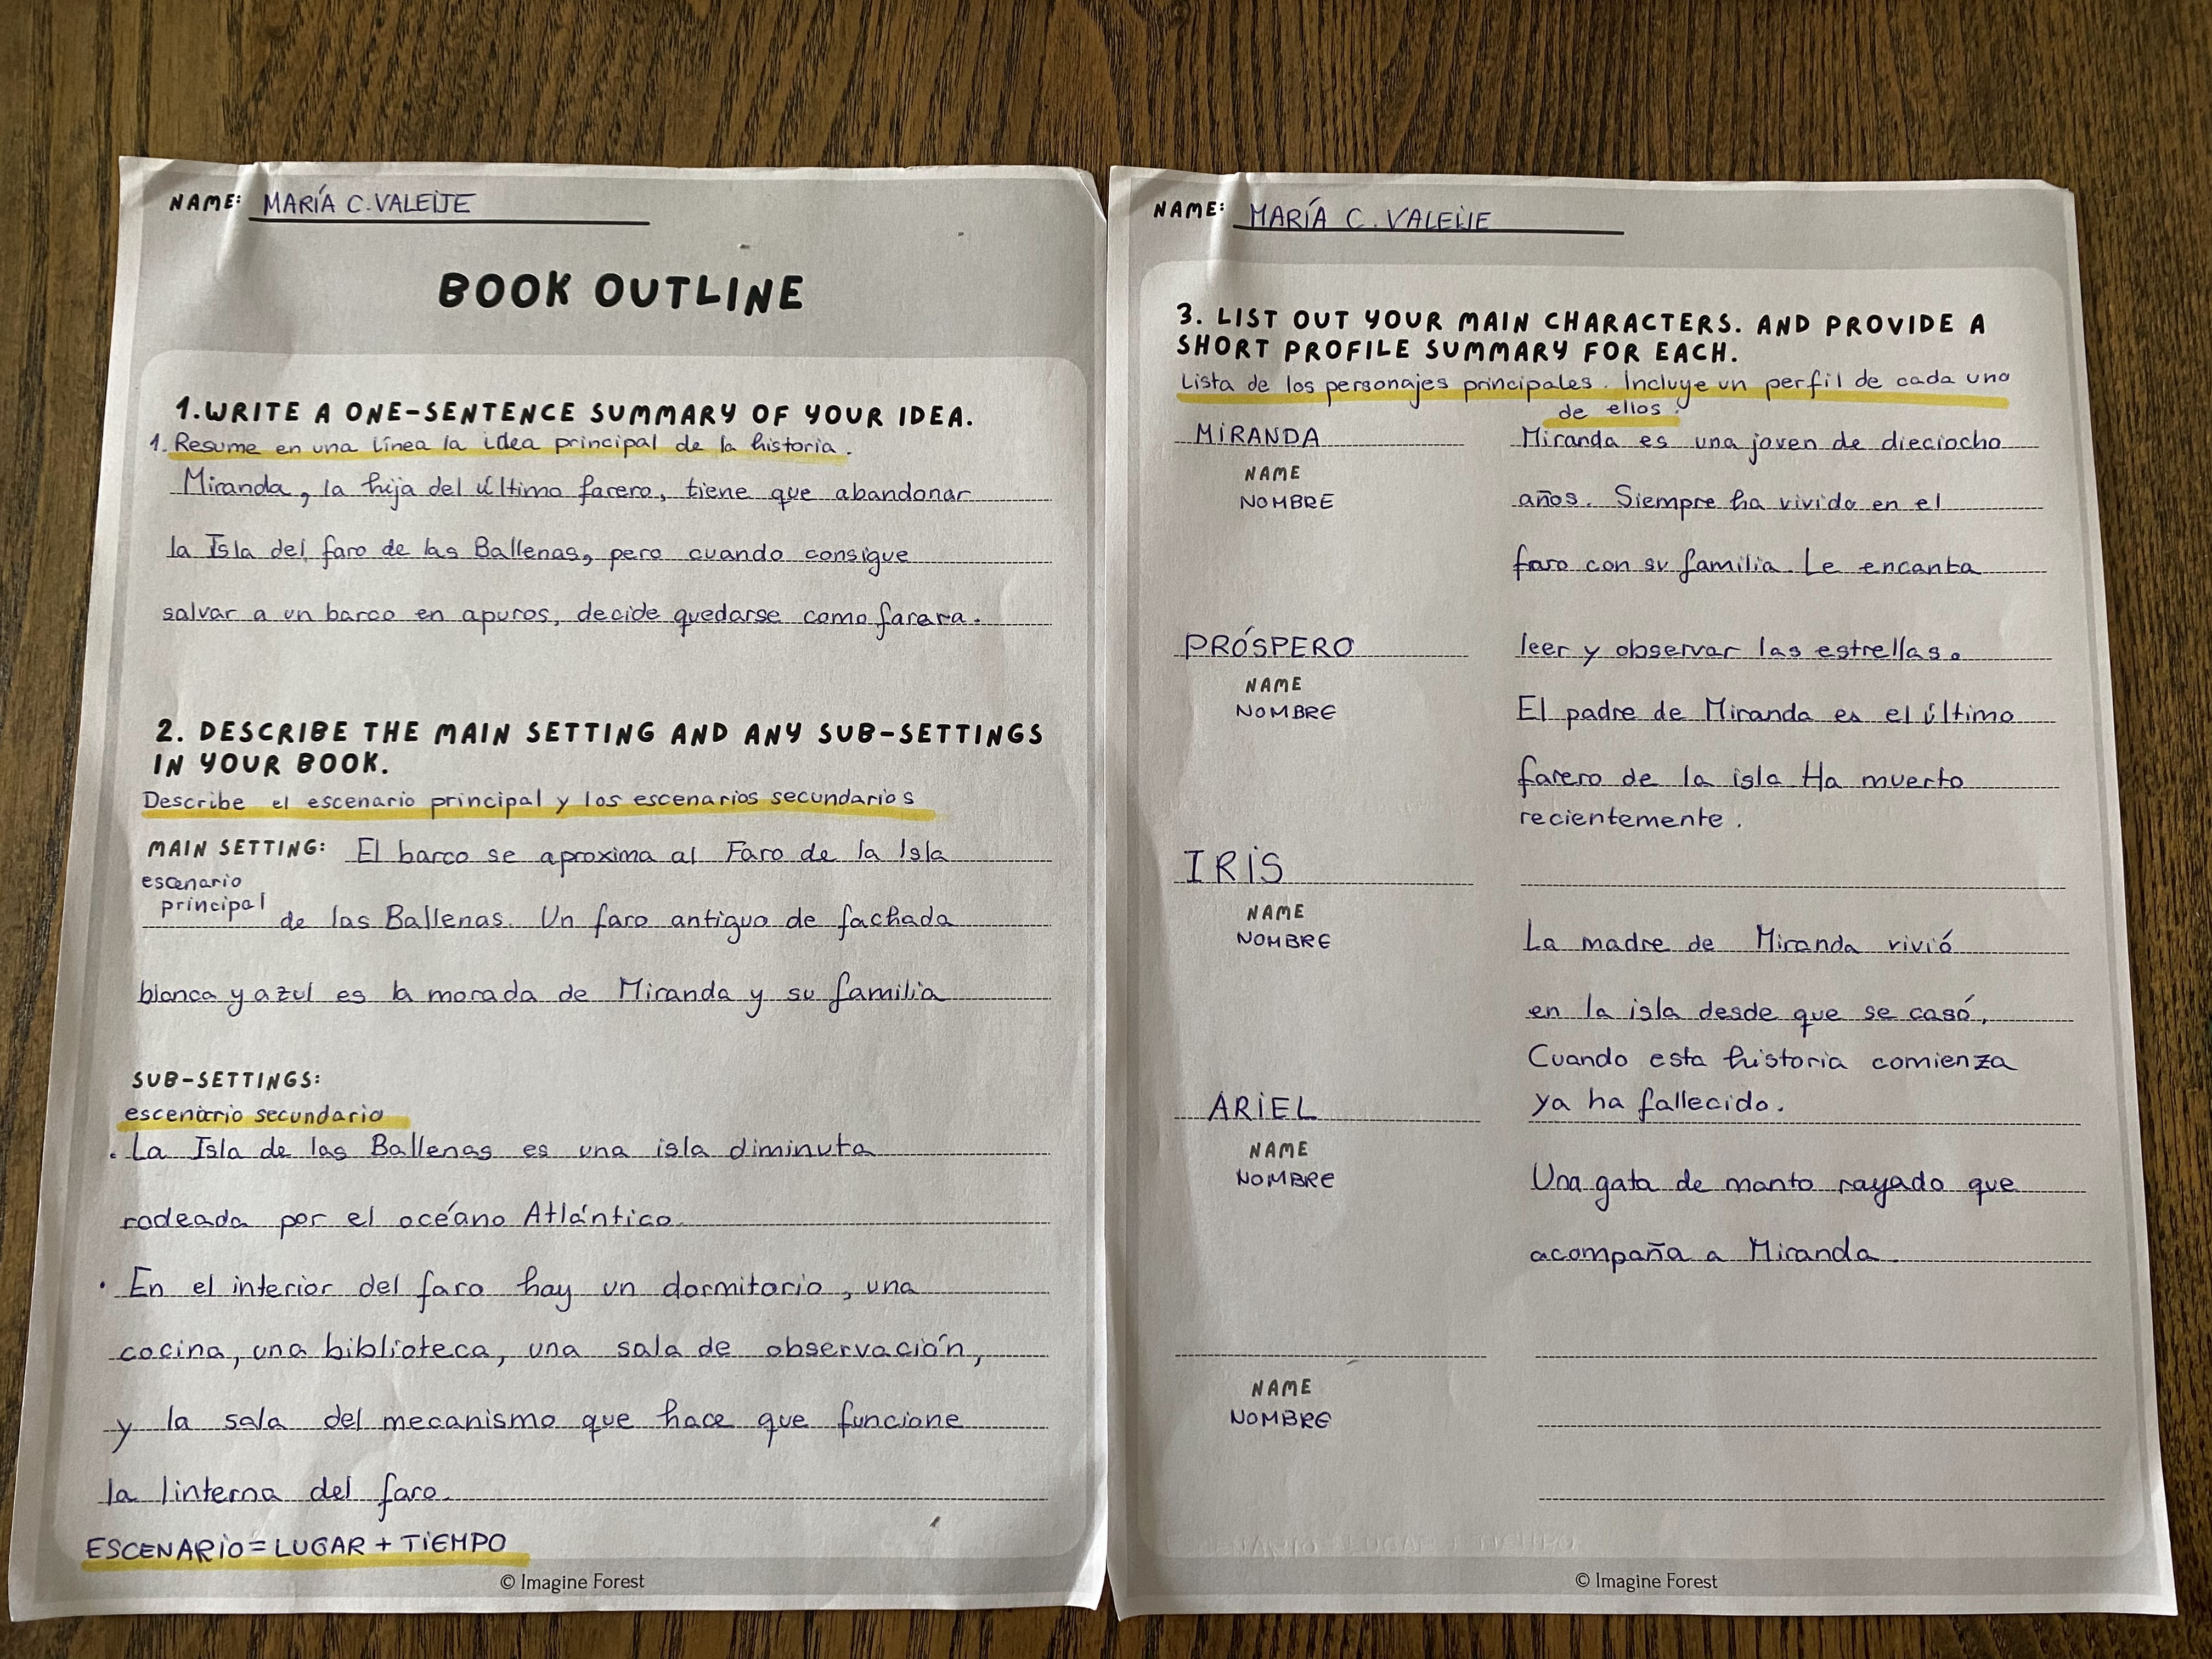 NAME: MARÍA C. VALEIJE
BOOK OUTLINE
1. WRITE A ONE-SENTENCE SUMMARY OF YOUR IDEA.
1. Resume en una línea la idea principal de la historia.
Miranda, la hija del último farero, tiene que abandonar
la Isla del faro de las Ballenas, pero cuando consigue
salvar a un barco en apuros, decide quedarse como farera.
2. DESCRIBE THE MAIN SETTING AND ANY SUB-SETTINGS
IN YOUR BOOK.
Describe el escenario principal y los escenarios secundarios
MAIN SETTING: El barco se aproxima al Faro de la Isla
escenario
principal
de las Ballenas. Un faro antiguo de fachada
blanca y azul es la morada de Miranda y su familia
SUB-SETTINGS:
escenario secundario
. La Isla de las Ballenas es una isla diminuta
rodeada por el océano Atlántico.
· En el interior del faro hay un dormitorio, una
cocina, una biblioteca, una sala de observación,
y la sala del mecanismo que hace que funcione
la linterna del faro.
ESCENARIO = LUGAR + TIEMPO
© Imagine Forest
NAME: MARÍA C. VALEIJE
3. LIST OUT YOUR MAIN CHARACTERS. AND PROVIDE A
SHORT PROFILE SUMMARY FOR EACH.
Lista de los personajes principales. Incluye un perfil de cada uno
de ellos.
MIRANDA
NAME
NOMBRE
Miranda es una joven de dieciocho
años. Siempre ha vivido en el
faro con su familia. Le encanta
leer y observar las estrellas.
PRÓSPERO
NAME
NOMBRE
El padre de Miranda es el último
farero de la isla. Ha muerto
recientemente.
IRIS
NAME
NOMBRE
La madre de Miranda vivió
en la isla desde que se casó,
Cuando esta historia comienza
ya ha fallecido.
ARIEL
NAME
NOMBRE
Una gata de manto rayado que
acompaña a Miranda.
NAME
NOMBRE
© Imagine Forest